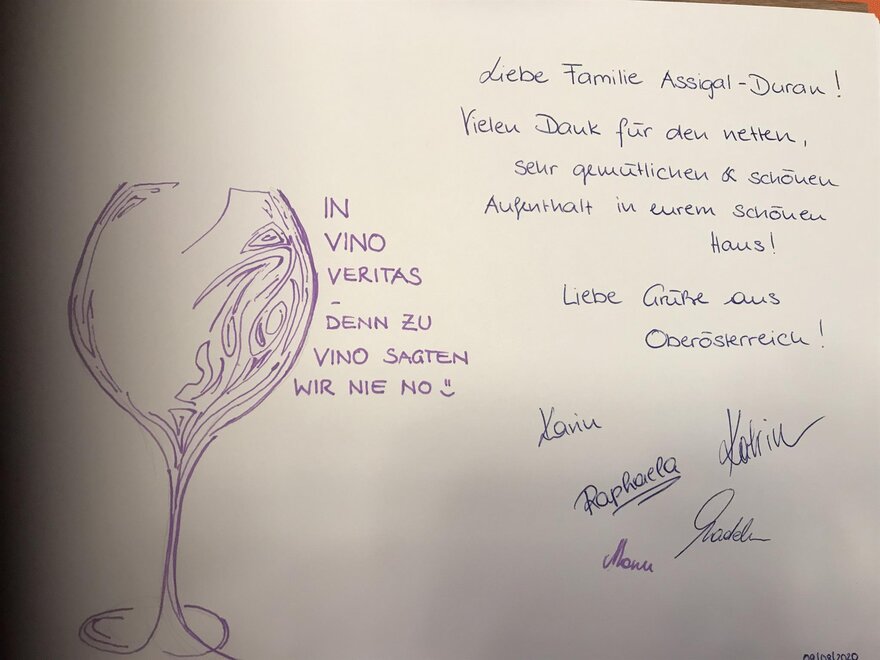 IN
VINO
VERITAS
-
DENN ZU
VINO SAGTEN
WIR NIE NO
Liebe Familie Assigal-Duran!
Vielen Dank für den netten,
sehr gemütlichen & schönen
Aufenthalt in eurem schönen
Haus!
Liebe Grüße aus
Oberösterreich!
Karin
Raphaela
Katrin
Manu